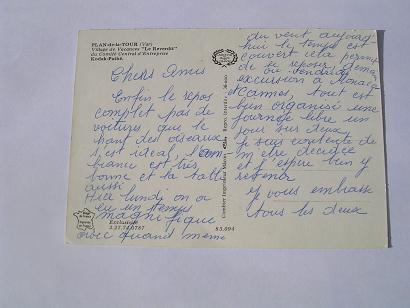 PLAN-de-la-TOUR (Var)
Village de Vacances "Le Reverdi"
du Comité Central d'Entreprise
Kodak-Pathé.
Chers Amis
Enfin le repos
complet pas de
voitures que le
chant des oiseaux
s'est idéal, l'am
biance est très
bonne et la table
aussi
Hier lundi on a
eu un temps
magnifique
avec quand meme
Exclusivité
83.094
du vent aujourd
hui le temps est
couvert cela permet
de se reposer, demain
ou vendredi
excursion à Monaco
Cannes, tout est
bien organisé une
journée libre un
jour sur deux.
Je suis contente de
m'etre décidée
et j'espère bien y
revenir
je vous embrasse
tous les deux